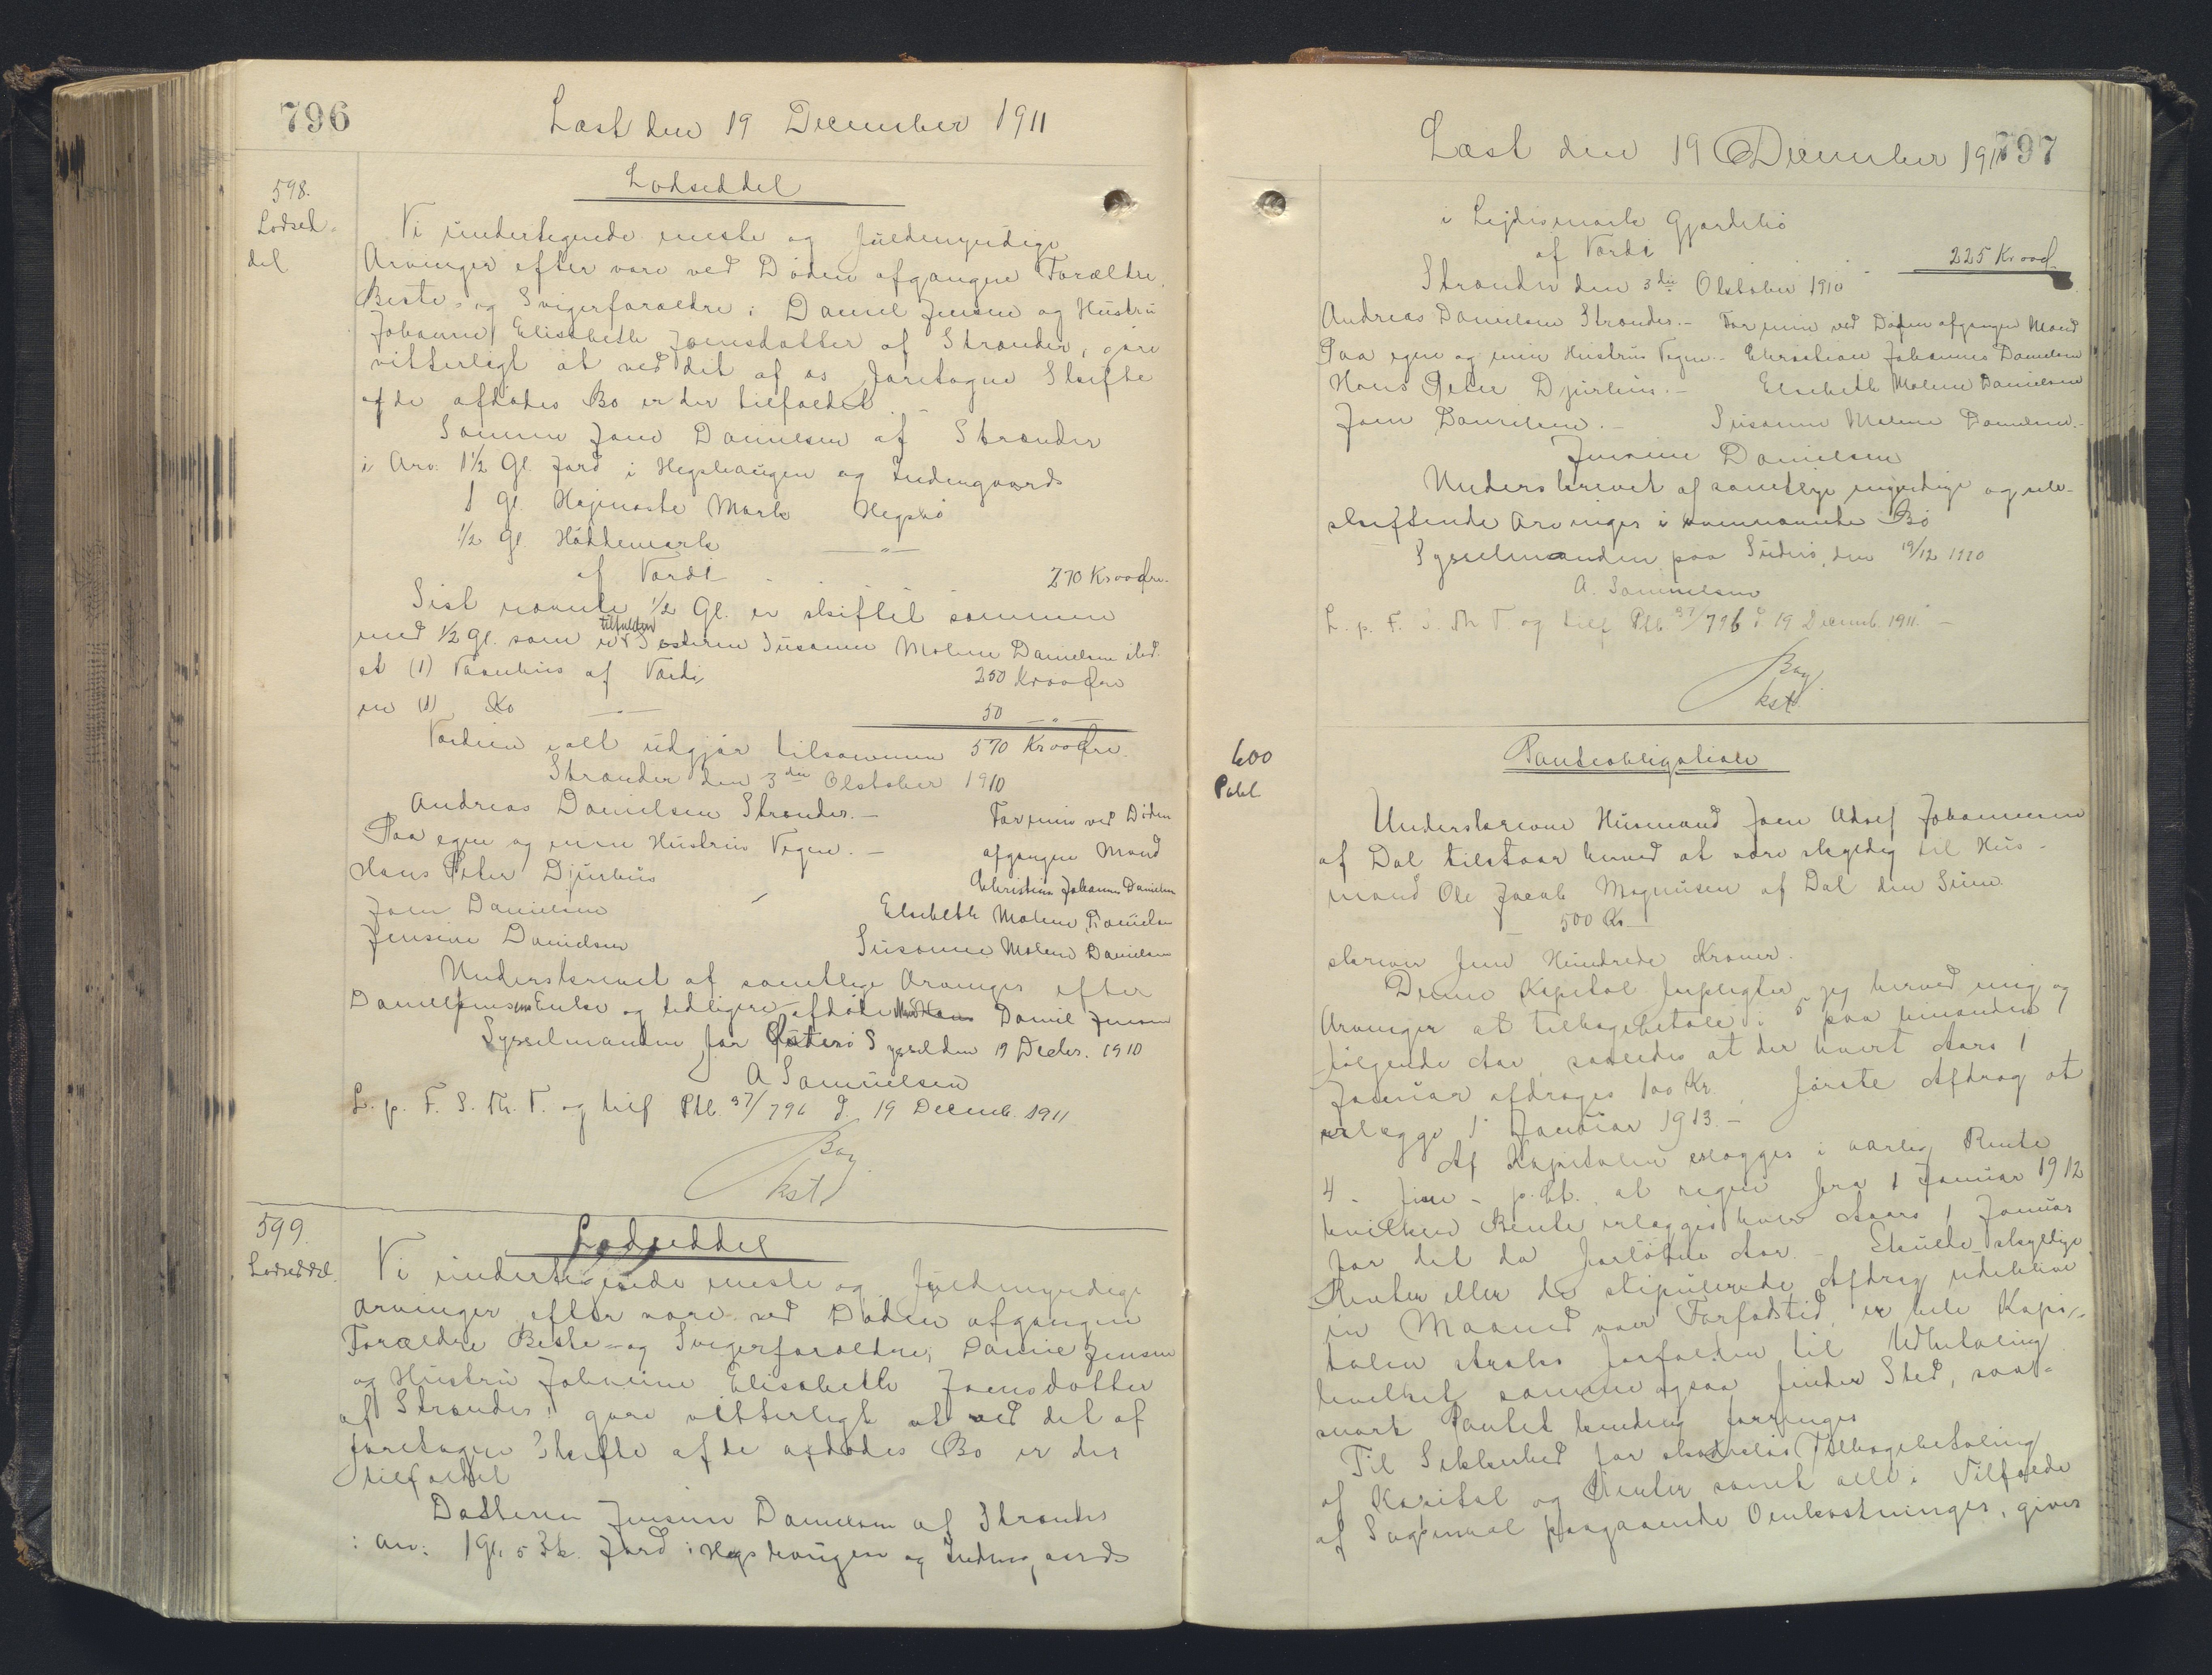 796
Læst den 19 December 1911
598.
Lodsed-
del
Lodseddel
Vi undertegnede eneste og fuldmyndige
Arvinger efter vore ved Døden afgangne Forældre,
Beste- og Svigerforældre: Daniel Jensen og Hustru
Johanne Elisabeth Joensdatter af Strænder, gøre
vitterligt at ved det af os foretagne Skifte
af de afdødes Bo er der tilfaldet
Sønnen Joen Danielsen af Strænder
i Arv: 1½ Gl. Jord i Hegshaugen og Indengaards
1 gl. Hajnaste Mark Hegsbø
½ gl. Høddemark —"—
af Værdi 270 Kr 00 Øre.
Sist nævnte ½ Gl. er skiftet sammen
med ½ gl. som er tilfalden Søsteren Susanne Malene Danielsen ibd.
et (1) Vaanhus af Værdi 250 Kr 00 Øre
en (1) Ko —"— 50 —"—
Værdien i alt udgjør tilsammen 570 Kr 00 Øre.
Strænder den 3die Oktober 1910
Andreas Danielsen Strænder. — For min ved Døden
Paa egne og min Hustrus Vegne. — afgangne Mand
Hans Peter Djurhuus Christian Johannes Danielsen
Joen Danielsen Elsebeth Malene Danielsen
Jensine Danielsen Susanne Malene Danielsen
Underskrevet af samtlige Arvinger efter
Daniel Jensens Enke og tidligere afdøde Daniel Jensen
Sysselmanden for Suderø Syssel den 19 Decbr. 1910
A Samuelsen
L. p. F. S. Th. T. og tilf Ptb 37/796 d. 19 Decemb. 1911
Bay
kst
599.
Lodseddel.
Lodseddel
Vi undertegnede eneste og fuldmyndige
Arvinger efter vore ved Døden afgangne
Forældre Beste- og Svigerforældre; Daniel Jensen
og Hustru Johanne Elisabeth Joensdatter
af Strænder, gøre vitterligt at ved det af
foretagne Skifte af de afdødes Bo er der
tilfaldet
Datteren Jensine Danielsen af Strænder
i Arv: 1 Gl. 5 Sk. Jord i Hegshaugen og Indengaards
797
Læst den 19 December 1911
i Lejdismark Gjørdebø
af Værdi 225 Kr 00 Ø.
Strænder den 3die Oktober 1910
Andreas Danielsen Strænder. — For min ved Døden afgangne Mand
Paa egne og min Hustrus Vegne. — Christian Johannes Danielsen
Hans Peter Djurhuus. — Elsebeth Malene Danielsen
Joen Danielsen. — Susanne Malene Danielsen. —
Jensine Danielsen
Underskrevet af samtlige myndige og selv-
skiftende Arvinger i ovennævnte Bo
Sysselmanden paa Suderø, den 19/12 1910
A. Samuelsen
L. p. F. S. Th. T. og tilf Ptb 37/796 d 19 Decemb. 1911. —
Bay
kst
600
Pobl
Panteobligation
Underskrevne Husmand Joen Adsef Johannesen
af Dal tilstaar herved at være skyldig til Hus-
mand Ole Jacob Magnusen af Dal den Sum
— 500 Kr —
skriver fem Hundrede Kroner.
Denne Kapital forpligter jeg herved mig og
Arvinger at tilbagebetale i 5 paa hinanden
følgende Aar, saaledes at der hvert Aars 1
Januar afdrages 100 Kr. første Afdrag at
erlægge 1 Januar 1913. —
Af Kapitalen erlægges i aarlig Rente
4 - fire - p.Ct. at regne fra 1 Januar 1912
hvilken Rente erlægges hver Aars 1 Januar
for det da forløbne Aar. — Skulde skyldige
Renter eller de stipulerede Afdrag udeblive
en Maaned over Forfaldstid, er hele Kapi-
talen straks forfalden til Udbetaling
hvilket samme ogsaa finder Sted, saa-
snart Pantet kendelig forringes
Til Sikkerhed for skadesløs Tilbagebetaling
af Kapital og Renter samt alle i Tilfælde
af Søgsmaal paagaaende Omkostninger, giver